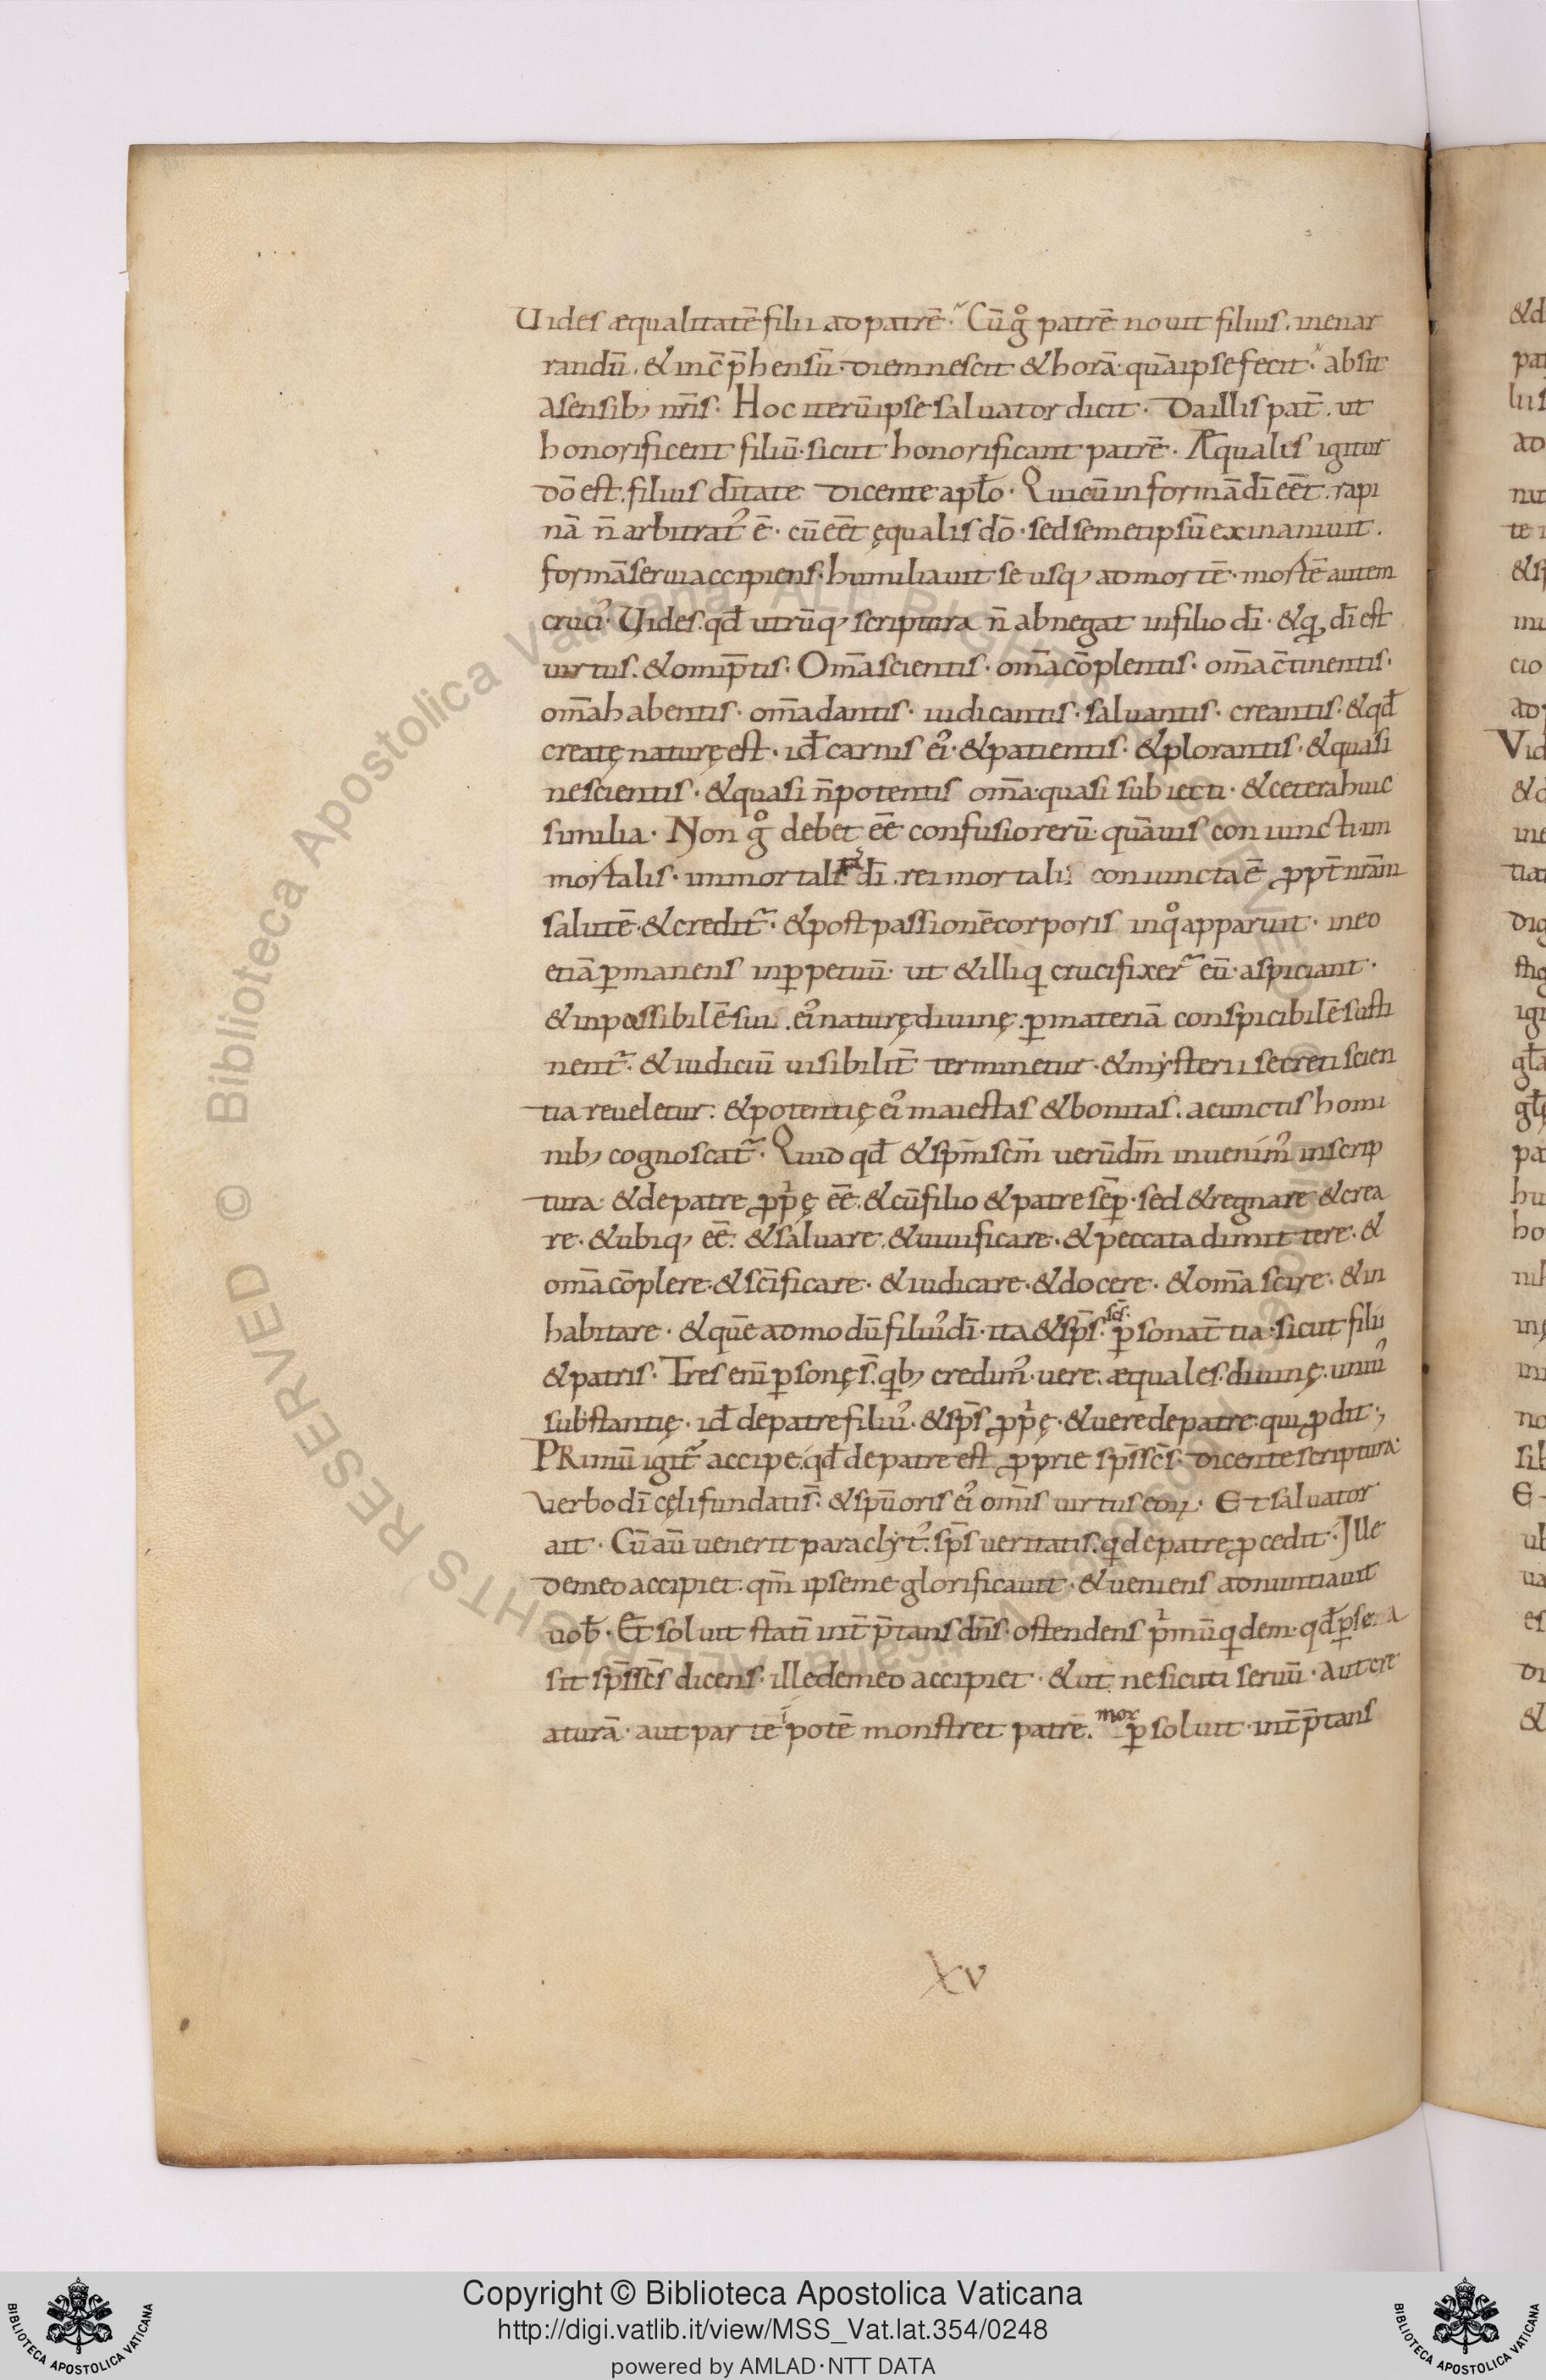 Uides æqualitatē filii ad patrē. Cū gͦ patrē nouit filius. inenar
randū. & inc̄p̄hensū. diem nescit & horā. quā ipse fecit. absit
a sensib; nr̄is. Hoc iterū ipse saluator dicit. Da illis pat̄. ut
honorificent filiū. sicut honorificant patrē. Æqualis igitur
dō est. filius dīitate dicente aplo. Qui cū in formā dī eēt. rapi
nā n̄ arbitrat᾿ ē. cū eēt ęqualis dō. sed semetipsū exinaniuit.
formā serui accipiens. humiliauit se usq; ad mortē. mortē autem
cruci᾿. Uides. qd̄ utrūq; scriptura n̄ abnegat in filio dī. & q; dī est
uirtus. & omīp̄tis. Om̄a scientis. om̄a cōplentis. om̄a c̄tinentis.
om̄a habentis. om̄a dantis. iudicantis. saluantis. creantis. & qd̄
creatę naturę est. id̄ carnis ei᾿. & patientis. & plorantis. & quasi
nescientis. & quasi n̄ potentis om̄a. quasi subiecti. & cetera huic
similia. Non gͦ debet eē confusio rerū. quāuis coniuncti. im
mortalis. immortali dī. rei mortali coniuncta ē ꝓpt̄ nr̄am
salutē. & credit᷑. & post passionē corporis in qͦ apparuit. in eo
etiā ꝑmanens in ꝑpetuū. ut & illi q crucifixer᷑ eū. aspiciant.
& inpossibilē sui. ei᾿ naturę diuinę. ꝑ materiā conspicibilē susti
nent᷑. & iudiciū uisibilit̄ terminetur. & mysterii secreti scien
tia reueletur. & potentię ei᾿ maiestas & bonitas. a cunctis homi
nib; cognoscat᷑. Quid qd̄ & sp̄m sc̄m uerūdm̄ inuenim᾿ in scrip
tura. & de patre ꝓp̍ę eē. & cū filio & patre sēꝑ. sed & regnare & crea
re. & ubiq; eē. & saluare. & uiuificare. & peccata dimittere. &
om̄a cōplere. & sc̄ificare. & iudicare. & docere. & om̄a scire. & in
habitare. & quēadmodū filiu᾿ dī. ita & sp̄s. sc̄s. ꝑsonat̄ tia. sicut filii
& patris. Tres enī ꝑsonę s̄. qb; credim᾿. uere. æquales. diuinę. uniu᾿
substantię. id̄ de patre filiu᾿. & sp̄s ꝓp̍ę. & uere de patre. qui ꝓdit;
PRimū igit᷑ accipe. qd̄ de patre est ꝓprie sp̄s sc̄s. dicente scriptura.
Verbo dī cęli fundati s̄. & spū oris ei᾿ om̄is uirtus eoꝝ. Et saluator
ait. Cū aū uenerit paraclyt᾿. sp̄s ueritatis. q de patre ꝓcedit. Ille
de meo accipiet. qm̄ ipse me glorificauit. & ueniens adnuntiauit
uob̄. Et soluit statī int̄p̄tans dn̄s. ostendens p̍mū qdem. qd̄
sit sp̄s sc̄s dicens. ille de meo accipiet. & ut ne sicuti seruū. aut cre
aturā. aut partē ipotē monstret patrē. mox ꝑsoluit. int̄p̄tans
XV
Copyright © Biblioteca Apostolica Vaticana
http://digi.vatlib.it/view/MSS_Vat.lat.354/0248
powered by AMLAD·NTT DATA